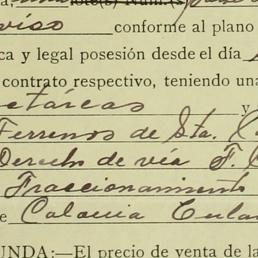 lote(s) Núm.(s)
viso conforme al plano
ca y legal posesión desde el día
contrato respectivo, teniendo una
ectáreas y
Terrenos de Sta.
Derecho de vía F. C.
Fraccionamiento
e Colonia
UNDA:—El precio de venta de la